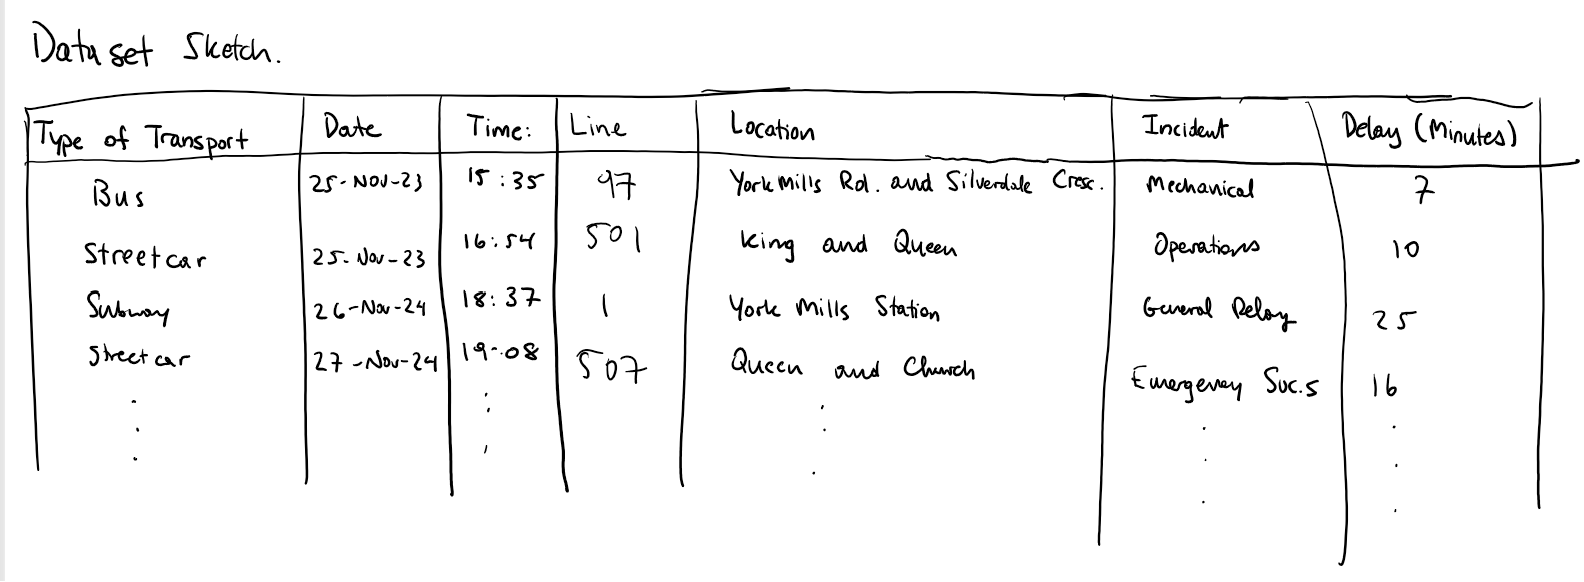 Dataset Sketch.
Type of Transport Date Time: Line Location Incident Delay (Minutes)
Bus 25-Nov-23 15:35 97 York Mills Rd. and Silverdale Cresc. Mechanical 7
Streetcar 25-Nov-23 16:54 501 King and Queen Operations 10
Subway 26-Nov-24 18:37 1 York Mills Station General Delay 25
Streetcar 27-Nov-24 19:08 507 Queen and Church Emergency Svc.s 16